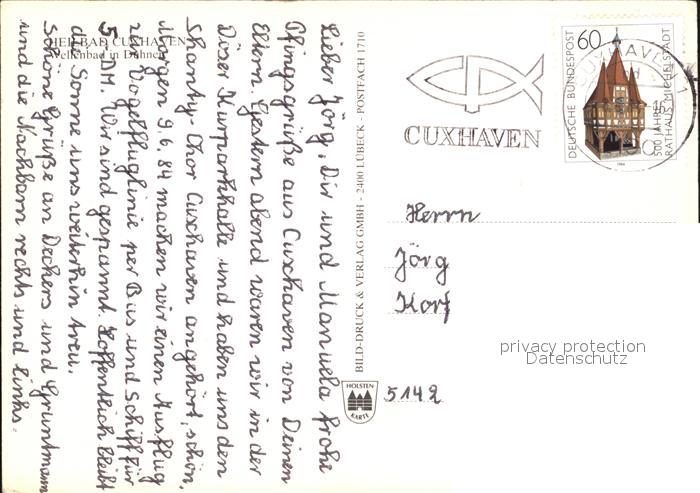 HEILBAD CUXHAVEN
Wellenbad in Duhnen
Lieber Jörg, Dir und Manuela frohe
Pfingsgrüße aus Cuxhaven von Deinen
Eltern. Gestern abend waren wir in der
Döser Kurparkhalle und haben uns den
Shanty-Chor Cuxhaven angehört, schön.
Morgen 9.6.84 machen wir einen Ausflug
zur Vogelfluglinie per Bus und Schiff für
5,- DM. Wir sind gespannt. Hoffentlich bleibt
die Sonne uns weiterhin treu.
Schöne Grüße an Deckers und Gruntmann
und die Nachbarn rechts und links.
BILD-DRUCK & VERLAG GMBH - 2400 LÜBECK - POSTFACH 1710
HOLSTEN
KARTE
CUXHAVEN
CUXHAVEN 1
DEUTSCHE BUNDESPOST
60
500 JAHRE
RATHAUS MICHELSTADT
1984
Herrn
Jörg
Korf
5142
privacy protection
Datenschutz